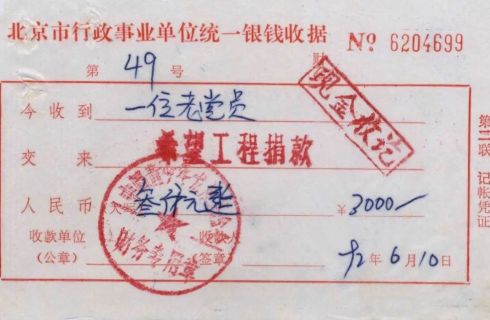 北京市行政事业单位统一银钱收据
№ 6204699
第 49 号
今收到 一位老党员
现金收讫
交来 希望工程捐款
人民币 叁仟元整 ¥3000—
收款单位 收款人
(公章) (签章) 92年6月10日
财务专用章
第二联 记帐凭证